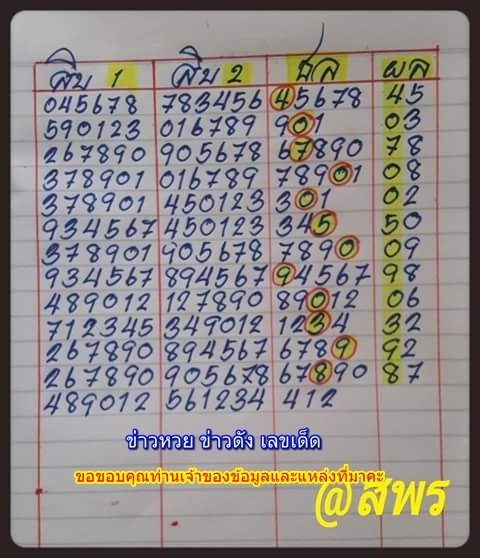 สิบ 1 สิบ 2 ชล ผล
045678 783456 45678 45
590123 016789 901 03
267890 905678 67890 78
378901 016789 78901 08
378901 450123 301 02
934567 450123 345 50
378901 905678 7890 09
934567 894567 94567 98
489012 127890 89012 06
712345 349012 1234 32
267890 894567 6789 92
267890 905678 67890 87
489012 561234 412
ข่าวหวย ข่าวดัง เลขเด็ด
ขอขอบคุณท่านเจ้าของข้อมูลและแหล่งที่มาคะ
@สพร